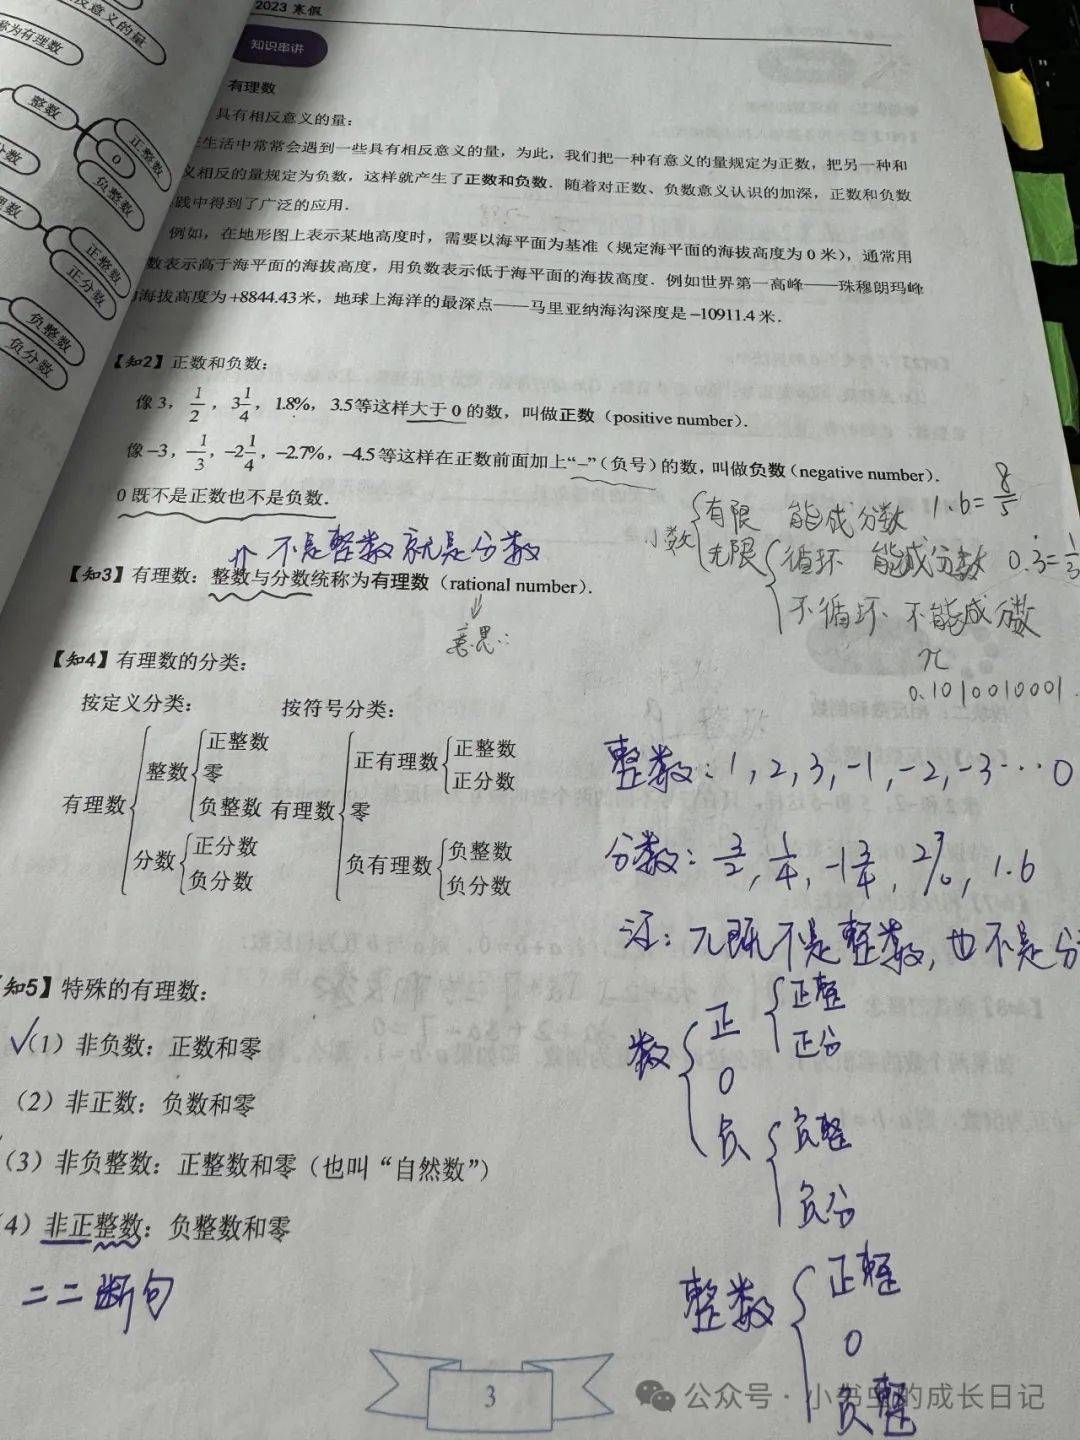 2023 寒假
反意义的量
称为有理数
整数
正整数
0
负整数
分数
正整数
正分数
负整数
负分数
知识串讲
有理数
具有相反意义的量：
生活中常常会遇到一些具有相反意义的量，为此，我们把一种有意义的量规定为正数，把另一种和
义相反的量规定为负数，这样就产生了正数和负数．随着对正数、负数意义认识的加深，正数和负数
践中得到了广泛的应用．
例如，在地形图上表示某地高度时，需要以海平面为基准（规定海平面的海拔高度为 0 米），通常用
数表示高于海平面的海拔高度，用负数表示低于海平面的海拔高度．例如世界第一高峰——珠穆朗玛峰
海拔高度为+8844.43米，地球上海洋的最深点——马里亚纳海沟深度是−10911.4米．
【知2】正数和负数：
像 3，1/2，3 1/4，1.8%，3.5等这样大于 0 的数，叫做正数（positive number）．
像−3，−1/3，−2 1/4，−2.7%，−4.5等这样在正数前面加上“−”（负号）的数，叫做负数（negative number）．
0 既不是正数也不是负数．
小数 有限 能成分数 1.6=8/5
无限 循环 能成分数 0.3̇=1/3
不循环 不能成分数
π
0.1010010001.
不是整数就是分数
【知3】有理数：整数与分数统称为有理数（rational number）．
意思：
【知4】有理数的分类：
按定义分类： 按符号分类：
有理数 整数 正整数
零
负整数
分数 正分数
负分数
有理数 正有理数 正整数
正分数
零
负有理数 负整数
负分数
整数：1，2，3，-1，-2，-3…0
分数：3/2，1/4，-1 3/4，2%，1.6
注：π既不是整数，也不是分
知5】特殊的有理数：
√（1）非负数：正数和零
（2）非正数：负数和零
（3）非负整数：正整数和零（也叫“自然数”）
4）非正整数：负整数和零
二二断句
数 正 正整
正分
0
负 负整
负分
整数 正整
0
负整
3
公众号·小书虫的成长日记